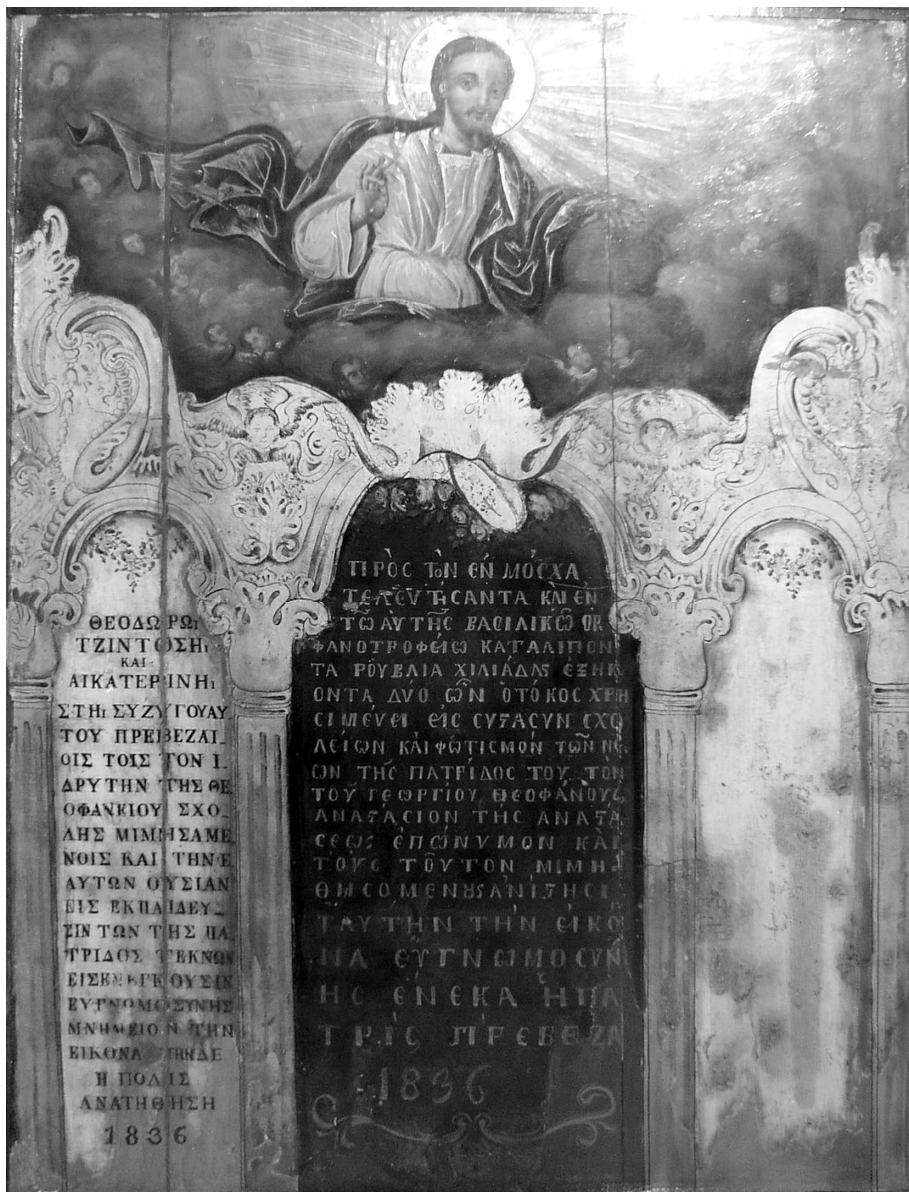 ΘΕΟΔΩΡΩι
ΤΖΙΝΤΩΣΗι
ΚΑΙ
ΑΙΚΑΤΕΡΙΝΗι
ΣΤΗι ΣΥΖΥΓΟΥΑΥ
ΤΟΥ ΠΡΕΒΕΖΑΙ_
ΟΙΣ ΤΟΙΣ ΤΟΝ Ι_
ΔΡΥΤΗΝ ΤΗΣ ΘΕ
ΟΦΑΝΚΙΟΥ ΣΧΟ_
ΛΗΣ ΜΙΜΗΣΑΜΕ
ΝΟΙΣ ΚΑΙ ΤΗΝ Ε
ΑΥΤΩΝ ΟΥΣΙΑΝ
ΕΙΣ ΕΚΠΑΙΔΕΥ_
ΣΙΝ ΤΩΝ ΤΗΣ ΠΑ_
ΤΡΙΔΟΣ ΤΕΚΝΩΝ
ΕΙΣΕΝΕΓΚΟΥΣΙΝ
ΕΥΓΝΩΜΟΣΥΝΗΣ
ΜΝΗΜΕΙΟΝ ΤΗΝ
ΕΙΚΟΝΑ ΤΗΝΔΕ
Η ΠΟΛΙΣ
ΑΝΑΤΗΘΗΣΗ
1836
ΠΡῸΣ ΤὸΝ ΕΝ ΜΟΣΧΑ
ΤΕΛΕΥΤΉΣΑΝΤΑ ΚΑΙ ΕΝ
ΤΩ͂ ΑΥΤΗ͂Σ ΒΑΣΙΛΙΚΩ͂ ΟΡ
ΦΑΝΟΤΡΟΦΕΙΩ ΚΑΤΑΛΙΠΟΝ
ΤΑ ΡΟΥΒΛΙΑ ΧΙΛΙΆΔΑΣ ΕΞΗΚ
ΟΝΤΑ ΔΥΟ ΩΝ͂ Ο ΤΟΚΟΣ ΧΡΗ
ΣΙΜΕΎΕΙ ΕΙΣ ΣΥΣΤΑΣΥΝ ΣΧΟ
ΛΕΙΩΝ ΚΑῚ ΦΩΤΙΣΜΟΝ ΤΩΝ͂ ΝΕ
ΩΝ ΤΗ͂Σ ΠΑΤΡΊΔΟΣ ΤΟΥ ΤΟΝ
ΤΟΥ ΓΕΩΡΓΙΟΥ ΘΕΟΦΑΝΟΥΣ
ΑΝΑΣΤΑΣΙΟΝ ΤΗΣ ΑΝΑΣΤΑ
ΣΕΩΣ ΕΠΏΝΥΜΟΝ ΚΑῚ
ΤΟΥΣ ΤΟΥ͂ΤΟΝ ΜΙΜΗ
ΘΗΣΟΜΕΝΟΥΣ ΑΝΙΣΤΗΣΙ
ΤΑΥΤΗΝ ΤΗΝ ΕΙΚΟ
ΝΑ ΕΥΓΝΩΜΟΣΥΝ
ΗΣ ΕΝΕΚΑ Η ΠΑ
ΤΡΙΣ ΠΡΕΒΕΖΑ
1836